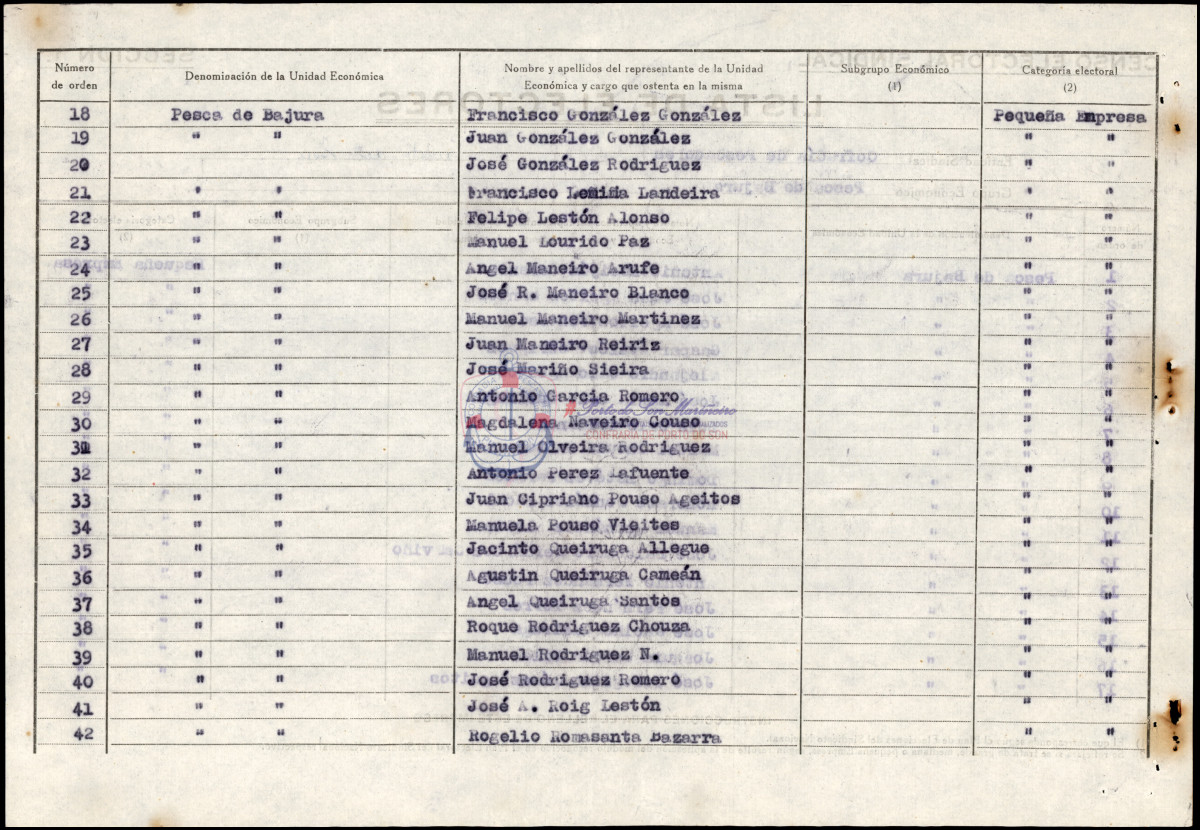 Número de orden | Denominación de la Unidad Económica | Nombre y apellidos del representante de la Unidad Económica y cargo que ostenta en la misma | Subgrupo Económico (1) | Categoría electoral (2)
18 Pesca de Bajura Francisco González González Pequeña Empresa
19 " " Juan González González " "
20 José González Rodriguez " "
21 " " Francisco Landeira " "
22 " " Felipe Lestón Alonso " "
23 " " Manuel Lourido Paz " "
24 " " Angel Maneiro Arufe " "
25 " " José R. Maneiro Blanco " "
26 " " Manuel Maneiro Martinez " "
27 " " Juan Maneiro Reiriz " "
28 " " José Mariño Sieira " "
29 " " Antonio Garcia Romero " "
30 " " Magdalena Naveiro Couso " "
31 " " Manuel Olveira Rodriguez " "
32 " " Antonio Perez Lafuente " "
33 " " Juan Cipriano Pouso Ageitos " "
34 " " Manuela Pouso Vieites " "
35 " " Jacinto Queiruga Allegue " "
36 " " Agustin Queiruga Cameán " "
37 " " Angel Queiruga Santos " "
38 " " Roque Rodriguez Chouza " "
39 " " Manuel Rodriguez N. " "
40 " " José Rodriguez Romero " "
41 " " José A. Roig Lestón " "
42 " " Rogelio Romasanta Bazarra " "
#Porto do Son Marineiro
CONFRARÍA DE PORTO DO SON